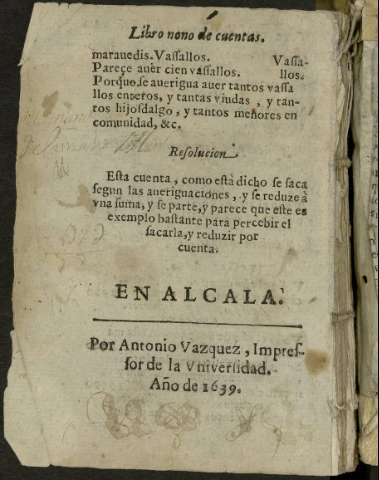 Libro nono de cuentas.
marauedis. Vassallos. Vassa-
Parece auer cien vassallos. llos.
Porque se auerigua auer tantos vassa
llos enteros, y tantas viudas, y tan-
tos hijosdalgo, y tantos menores en
comunidad, &c.
Resolucion.
Esta cuenta, como està dicho se saca
segun las aueriguaciones, y se reduze à
vna suma, y se parte, y parece que este es
exemplo bastante para percebir el
sacarla, y reduzir por
cuenta.
EN ALCALA.
Por Antonio Vazquez, Impres-
sor de la Vniversidad.
Año de 1639.